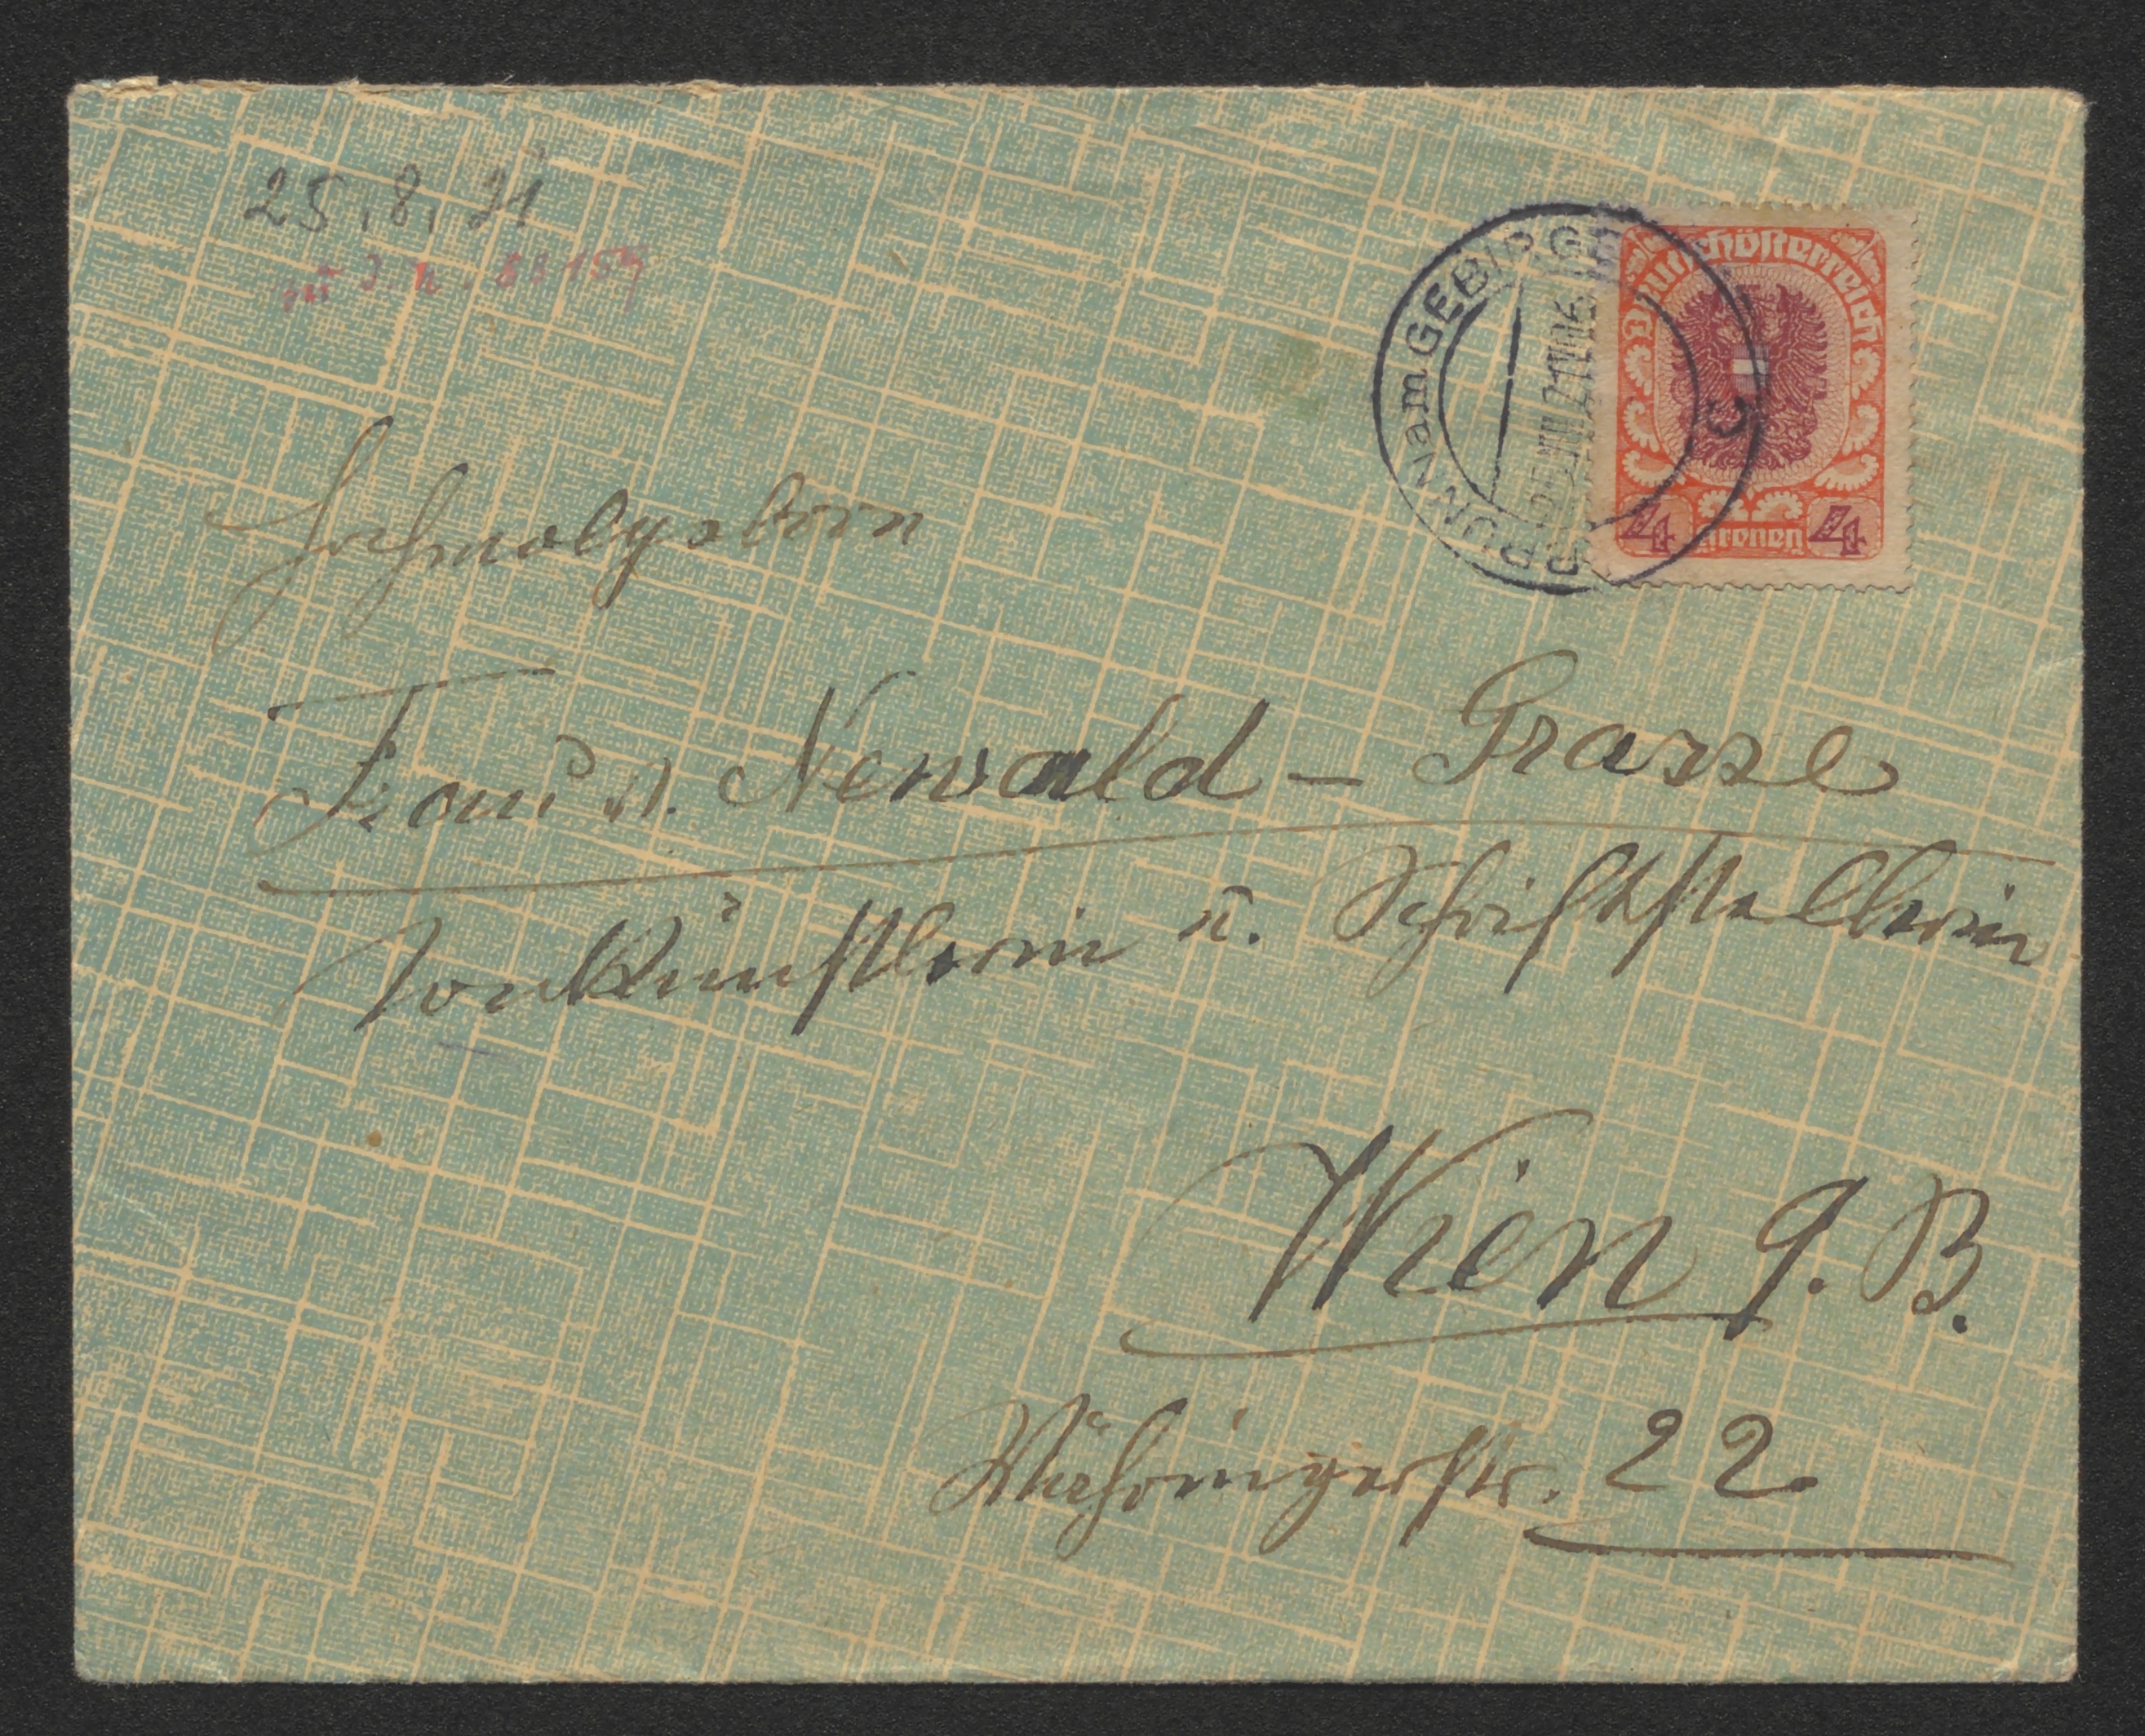 25.8.21
zu I.N. 53154
BRUNN am GEBIRGE
25.VIII.21 16
C
Deutschösterreich
4 Kronen 4
Hochwolgeboren
Frau v. Newald-Grasse
Tonkünstlerin u. Schriftstellerin
Wien 9. B.
Währingerstr. 22